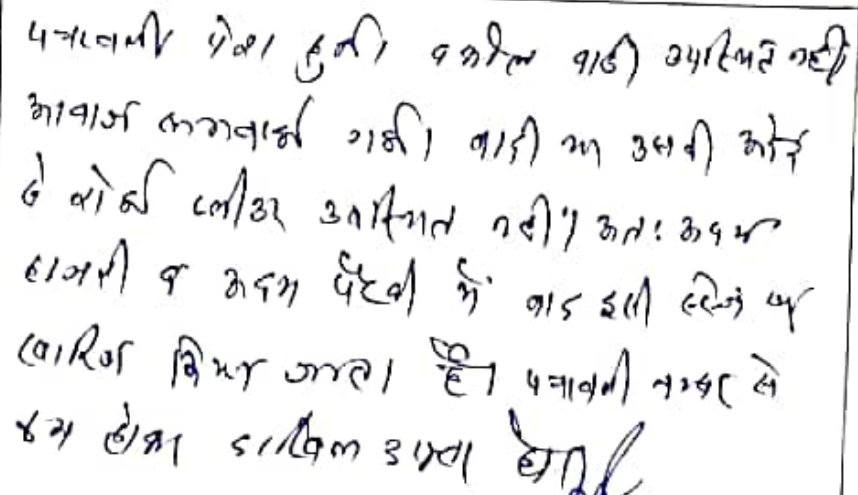 पत्रावली पेश हुई। वकील वादी उपस्थित नहीं
आवाज लगवाई गई। वादी या उसकी ओर
से कोई प्लीडर उपस्थित नहीं। अतः अदम
हाजरी व अदम पैरवी में वाद इसी स्टेज पर
खारिज किया जाता है। पत्रावली नम्बर से
कम होकर दाखिल दफ्तर हो।